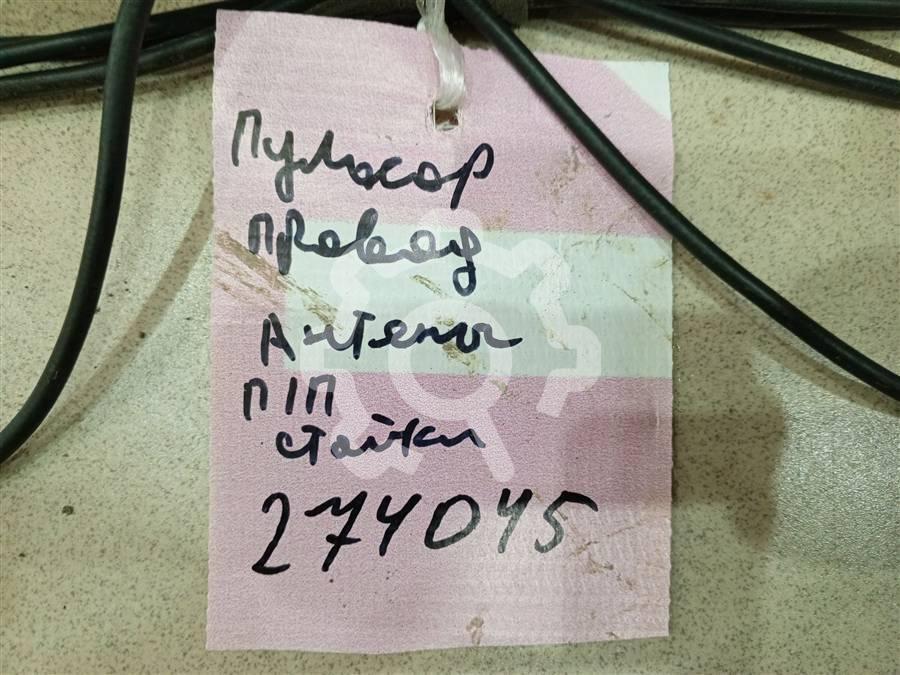 Пульсар
провод
Антены
П/П
стойки
274045